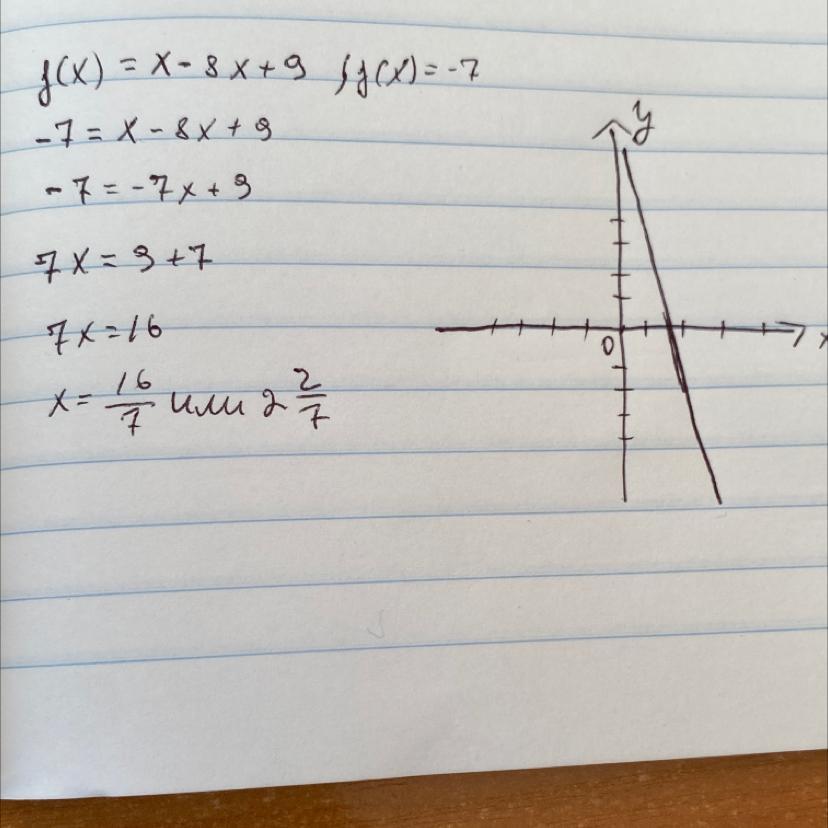 f(x) = x - 8x + 9 ; f(x) = -7
-7 = x - 8x + 9
-7 = -7x + 9
7x = 9 + 7
7x = 16
x = 16/7 или 2 2/7
y
0
x